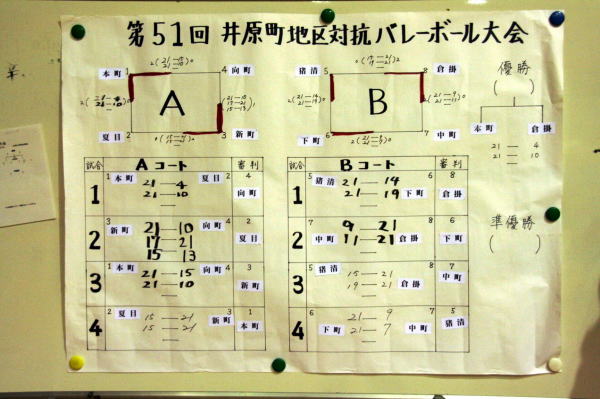 第51回 井原町地区対抗バレーボール大会
本町 1 4 向町
A
夏目 2 3 新町
猪清 5 8 倉掛
B
下町 6 7 中町
優勝
( )
本町 倉掛
21 — 4
21 — 10
準優勝
( )
試合 Aコート 審判
1 1 本町 夏目 2 4 向町
21 — 4
21 — 10
2 3 新町 向町 4 2 夏目
21 — 10
17 — 21
15 — 13
3 1 本町 向町 4 3 新町
21 — 15
21 — 10
4 2 夏目 新町 3 1 本町
15 — 21
15 — 21
試合 Bコート 審判
1 5 猪清 下町 6 8 倉掛
21 — 14
21 — 19
2 7 中町 倉掛 8 6 下町
9 — 21
11 — 21
3 5 猪清 倉掛 8 7 中町
15 — 21
19 — 21
4 6 下町 中町 7 5 猪清
21 — 9
21 — 7